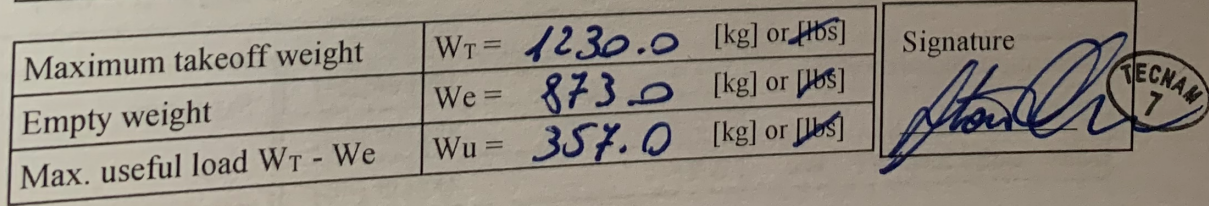 Maximum takeoff weight WT = 1230.0 [kg] or [lbs]
Empty weight We = 873.0 [kg] or [lbs]
Max. useful load WT - We Wu = 357.0 [kg] or [lbs]
Signature
TECNAM
7